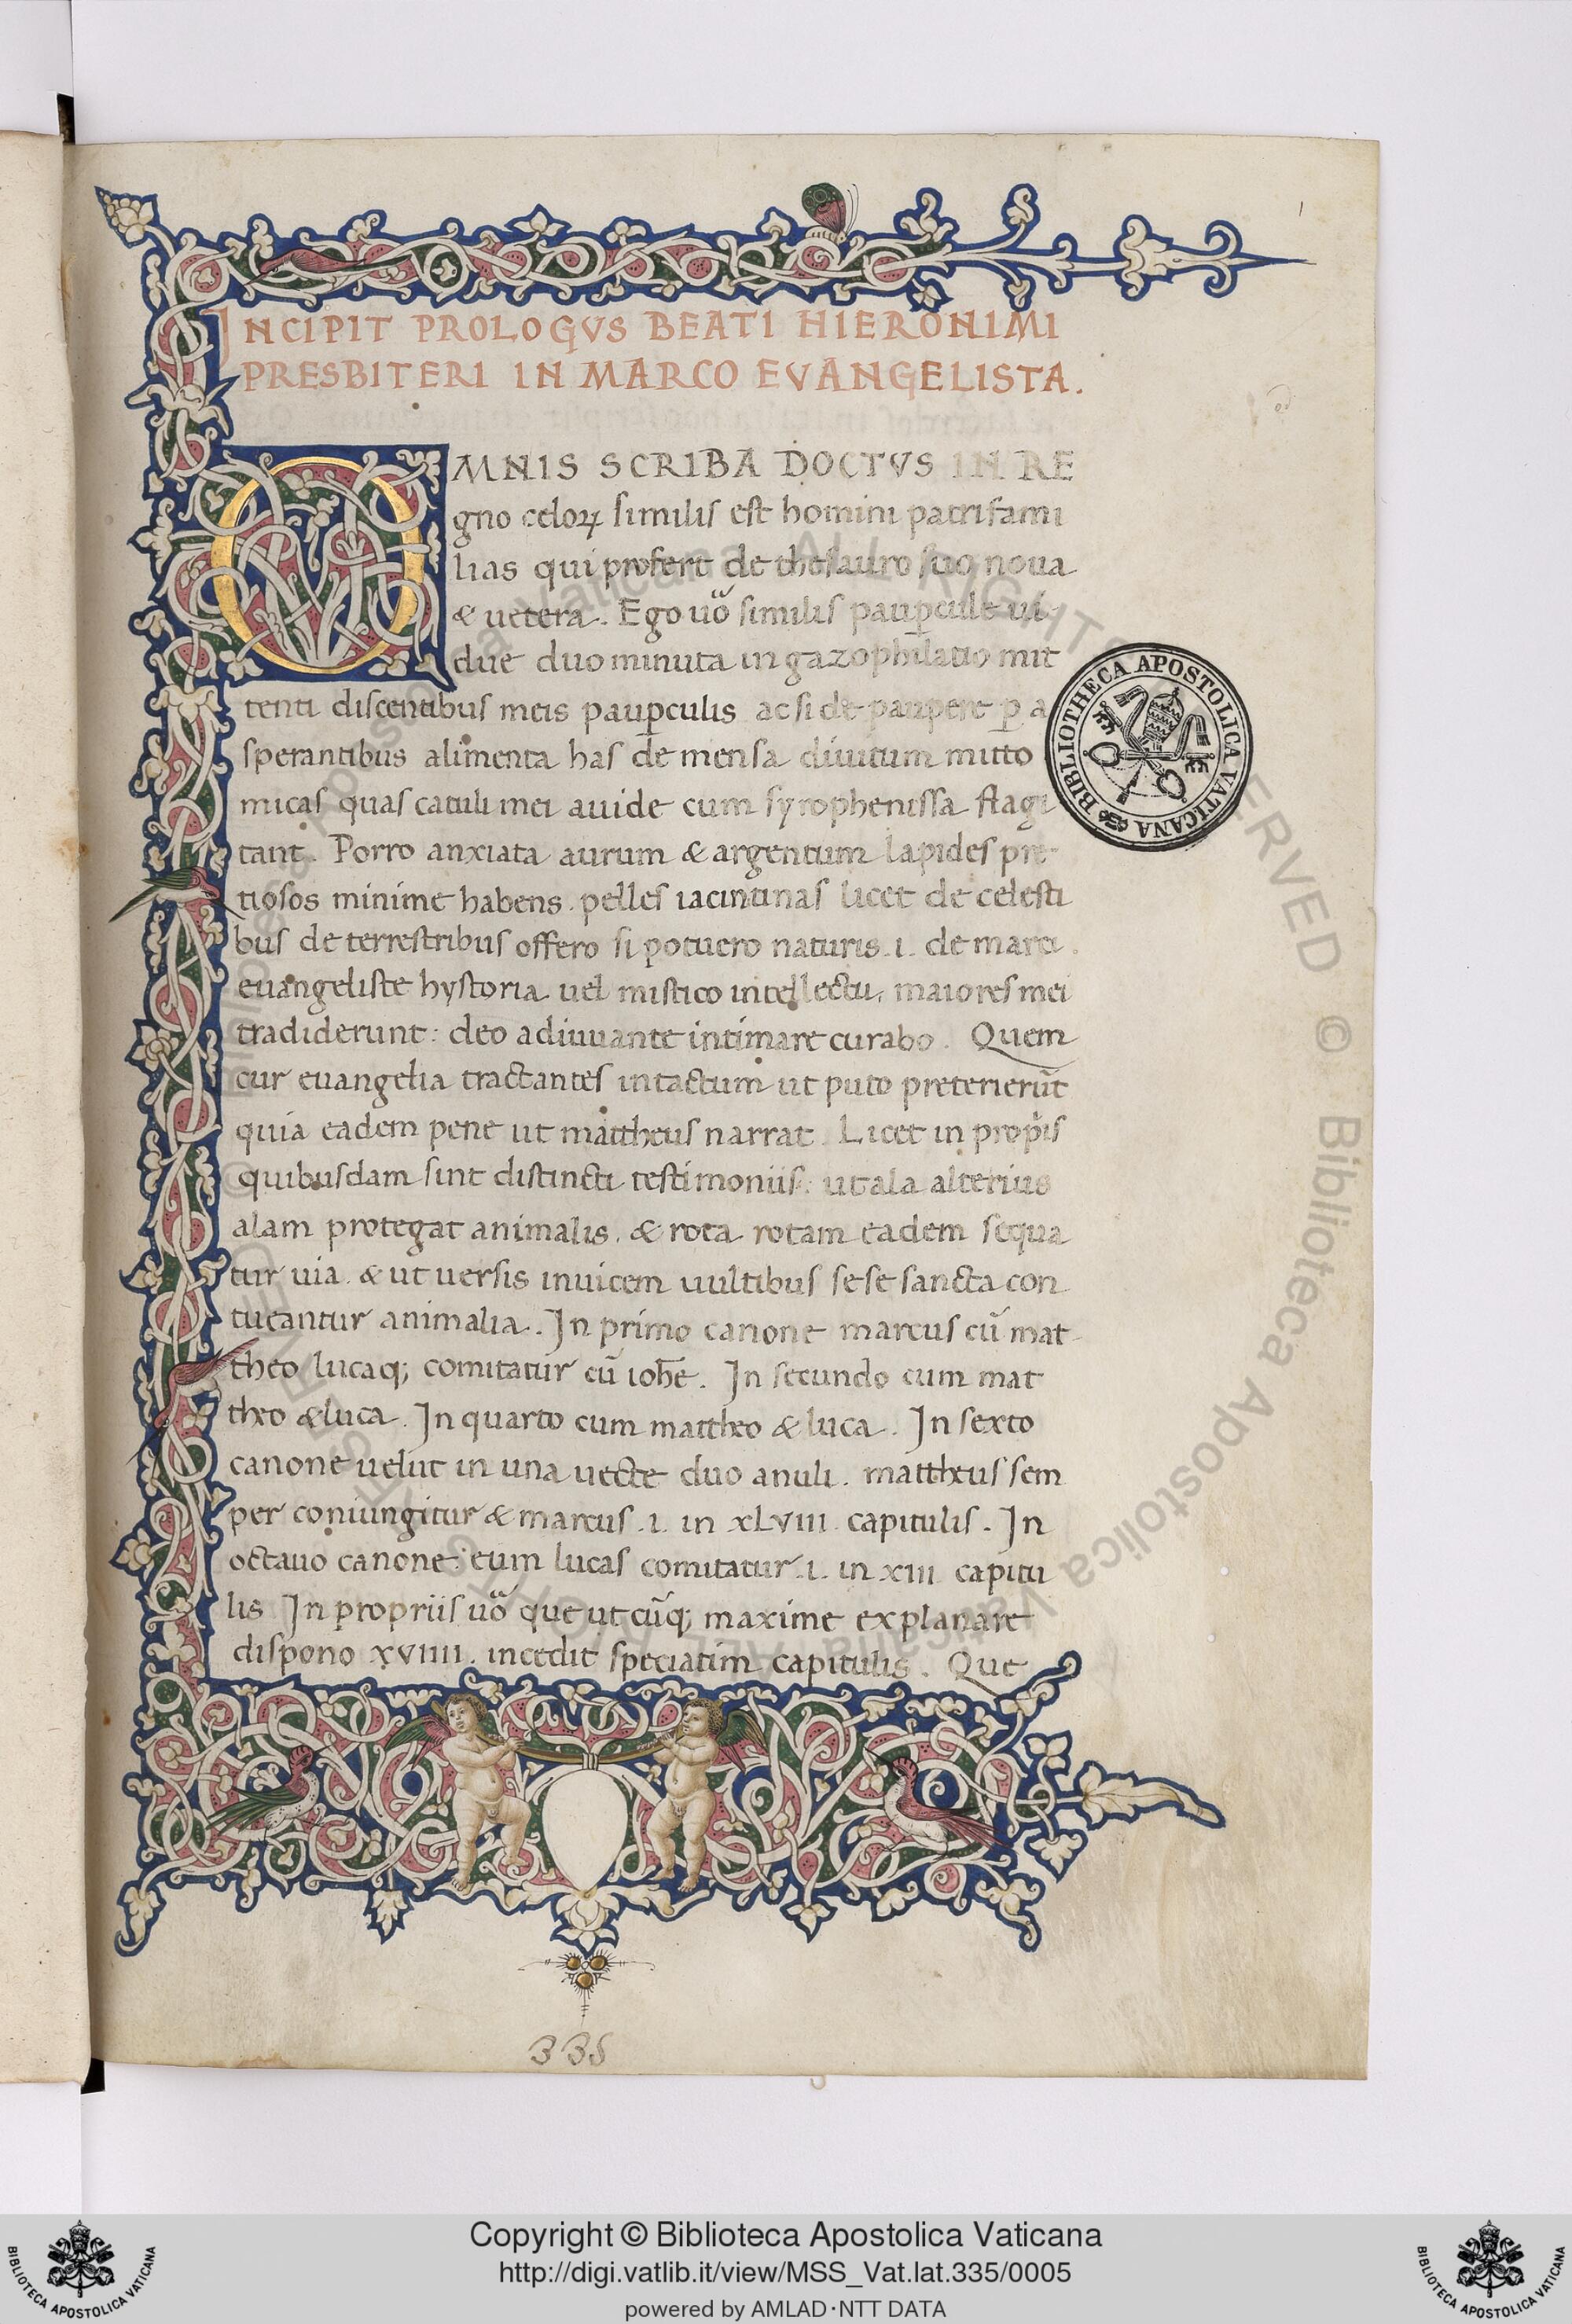 1
INCIPIT PROLOGVS BEATI HIERONIMI
PRESBITERI IN MARCO EVANGELISTA.
OMNIS SCRIBA DOCTVS IN RE
gno celoꝝ similis est homini patrifami
lias qui profert de thesauro suo noua
& uetera. Ego uō similis pauꝑcule ui-
due duo minuta in gazophilatio mit
tenti discentibus meis pauꝑculis ac si de paupere ꝑ a
sperantibus alimenta has de mensa diuitum mitto
micas quas catuli mei auide cum syrophenissa flagi
tant. Porro anxiata aurum & argentum lapides pre-
tiosos minime habens. pelles iacintinas licet de celesti
bus de terrestribus offero si potuero naturis .i. de marci.
euangeliste hystoria uel mistico intellectu, maiores mei
tradiderunt: deo adiuuante intimare curabo. Quem
cur euangelia tractantes intactum ut puto preterierūt
quia eadem pene ut mattheus narrat. Licet in propris
quibusdam sint distincti testimoniis: ut ala alterius
alam protegat animalis. & rota rotam eadem sequa
tur uia. & ut uersis inuicem uultibus sese sancta con
tueantur animalia. In primo canone marcus cū mat-
theo lucaq; comitatur cū iohe. In secundo cum mat
theo & luca. In quarto cum mattheo & luca. In sexto
canone uelut in una uecte duo anuli. mattheus sem
per coniungitur & marcus .i. in xLviii capitulis. In
octauo canone eum lucas comitatur .i. in xiii capitu
lis In propriis uō que utcūq; maxime explanare
dispono xviiii. incedit speciatim capitulis. Que
335
BIBLIOTHECA APOSTOLICA VATICANA
© Biblioteca Apostolica Vaticana ALL RIGHTS RESERVED
Copyright © Biblioteca Apostolica Vaticana
http://digi.vatlib.it/view/MSS_Vat.lat.335/0005
powered by AMLAD·NTT DATA
BIBLIOTECA APOSTOLICA VATICANA
BIBLIOTECA APOSTOLICA VATICANA